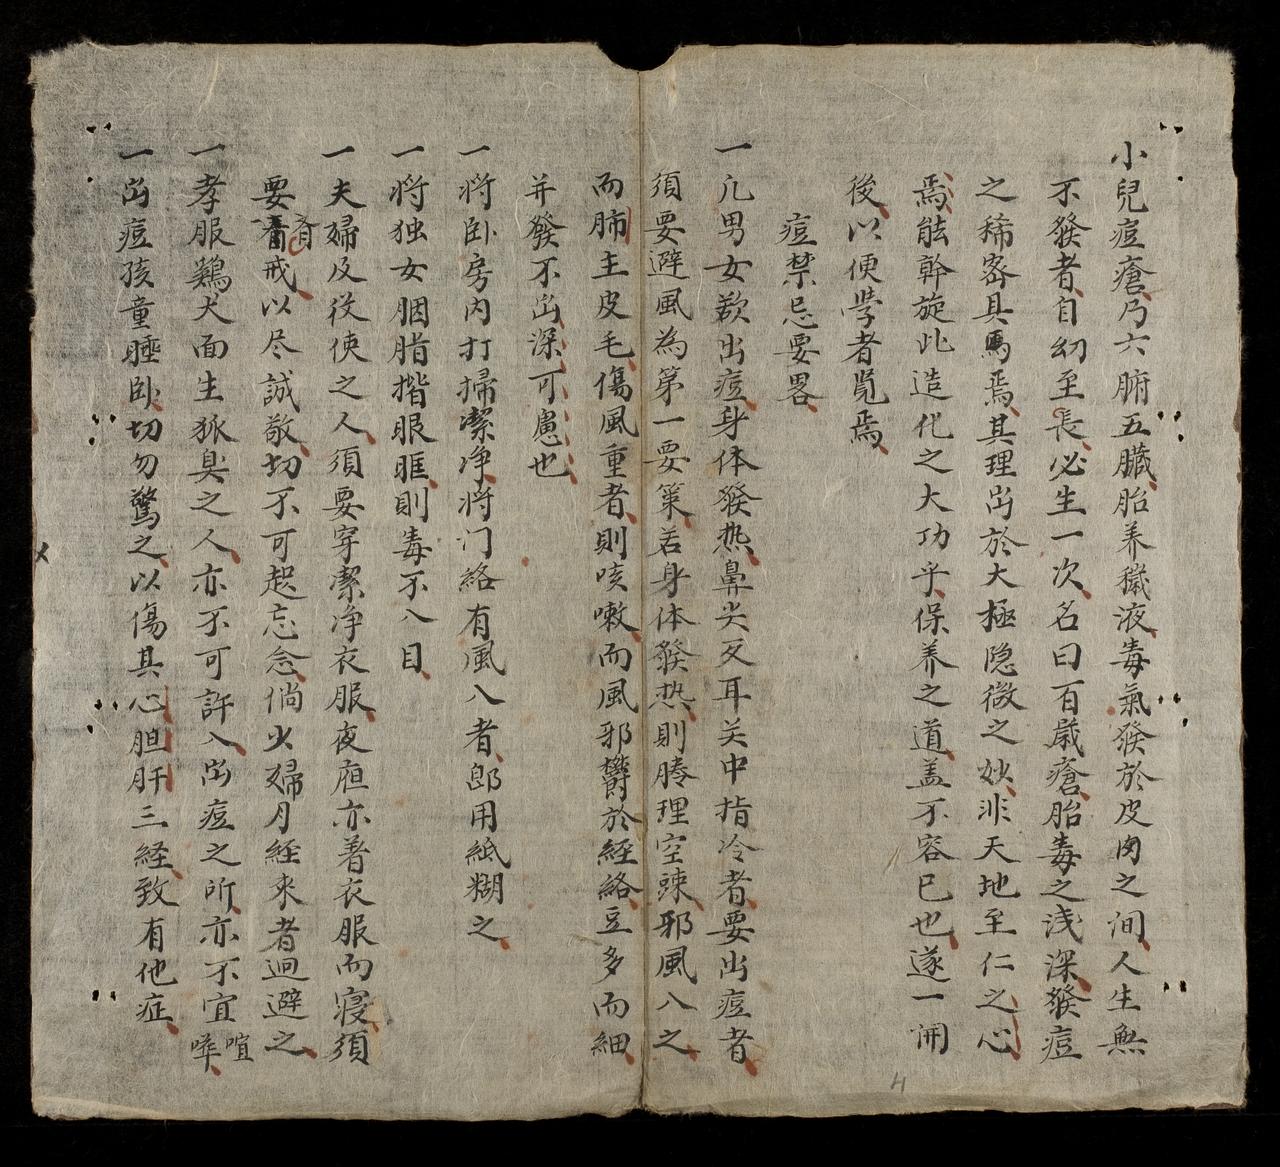 小兒痘瘡乃六腑五臟胎养穢液毒氣發於皮肉之间人生無
不發者自幻至長必生一次名曰百歲瘡胎毒之浅深發痘
之稀密具焉焉其理出於大極隐微之妙非天地至仁之心
焉能幹旋此造化之大功乎保养之道盖不容已也遂一開
後以便學者览焉
痘禁忌要畧
一凢男女欲出痘身体發热鼻尖及耳关中指冷者要出痘者
須要避風為第一要策若身体發热則腠理空踈邪風入之
而肺主皮毛傷風重者則咳嗽而風邪欝於経絡豆多而細
并發不出深可慮也
一将卧房内打掃潔净将门絡有風入者郎用紙糊之
一将独女胭脂揩眼眶則毒不入目
一夫婦及役使之人須要穿潔净衣服夜宿亦着衣服而寝須
要齋戒以尽誠敬切不可起忘念倘火婦月経来者廻避之
一孝服鷄犬面生狐臭之人亦不可許入出痘之所亦不宜喧嘩
一出痘孩童睡卧切勿驚之以傷其心胆肝三経致有他症